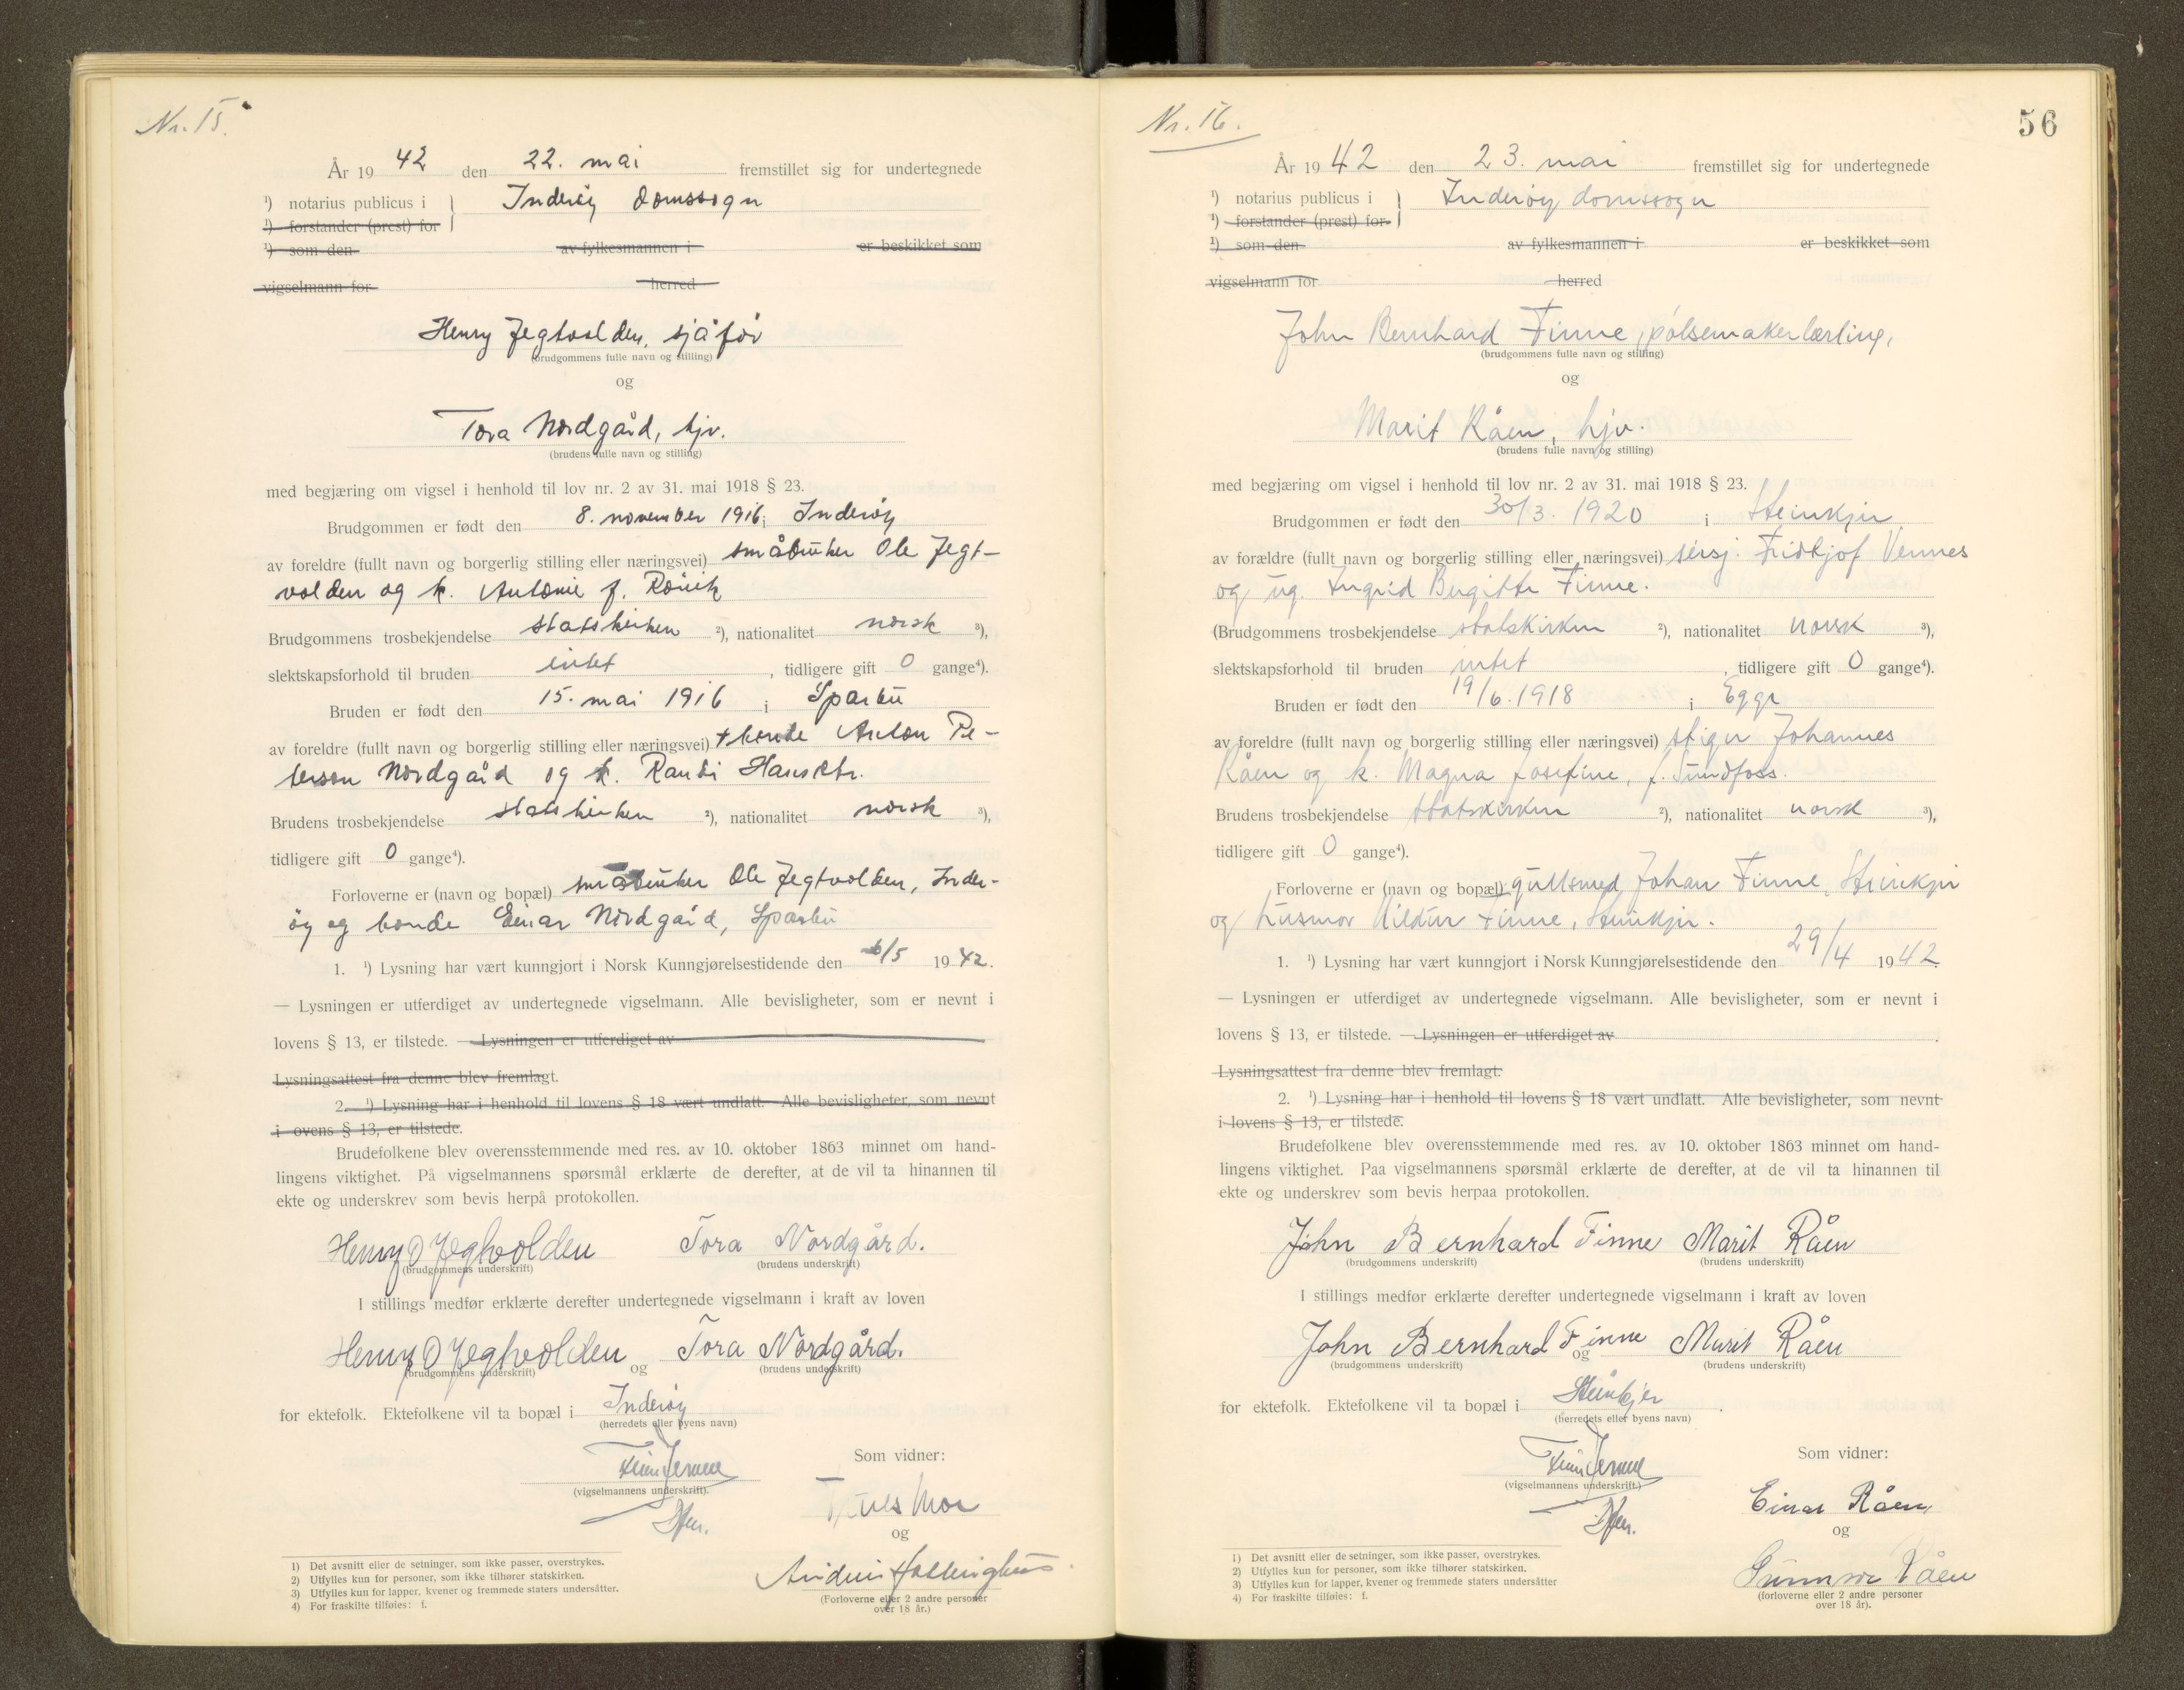 Nr. 15.
År 1942 den 22. mai fremstillet sig for undertegnede
¹) notarius publicus i } Inderöy domssogn
¹) forstander (prest) for
¹) som den av fylkesmannen i er beskikket som
vigselmann for herred
Henry Jegtvolden, sjåför
(brudgommens fulle navn og stilling)
og
Tora Nordgård, hjv.
(brudens fulle navn og stilling)
med begjæring om vigsel i henhold til lov nr. 2 av 31. mai 1918 § 23.
Brudgommen er født den 8. november 1916 i Inderöy
av foreldre (fullt navn og borgerlig stilling eller næringsvei) småbruker Ole Jegt-
volden og k. Antonie f. Rönik
Brudgommens trosbekjendelse statskirken ²), nationalitet norsk ³),
slektskapsforhold til bruden intet , tidligere gift 0 gange⁴).
Bruden er født den 15. mai 1916 i Sparbu
av foreldre (fullt navn og borgerlig stilling eller næringsvei) + bonde Anton Pe-
terson Nordgård og k. Randi Hansdtr.
Brudens trosbekjendelse statskirken ²), nationalitet norsk ³),
tidligere gift 0 gange⁴).
Forloverne er (navn og bopæl) småbruker Ole Jegtvolden, Inder-
öy og bonde Einar Nordgård, Sparbu
1. ¹) Lysning har vært kunngjort i Norsk Kunngjørelsestidende den 6/5 1942.
— Lysningen er utferdiget av undertegnede vigselmann. Alle bevisligheter, som er nevnt i
lovens § 13, er tilstede. — Lysningen er utferdiget av
Lysningsattest fra denne blev fremlagt.
2. ¹) Lysning har i henhold til lovens § 18 vært undlatt. Alle bevisligheter, som nevnt
i ovens § 13, er tilstede.
Brudefolkene blev overensstemmende med res. av 10. oktober 1863 minnet om hand-
lingens viktighet. På vigselmannens spørsmål erklærte de derefter, at de vil ta hinannen til
ekte og underskrev som bevis herpå protokollen.
Henry O Jegtvolden Tora Nordgård.
(brudgommens underskrift) (brudens underskrift)
I stillings medfør erklærte derefter undertegnede vigselmann i kraft av loven
Henry O Jegtvolden og Tora Nordgård.
(brudgommens underskrift) (brudens underskrift)
for ektefolk. Ektefolkene vil ta bopæl i Inderöy
(herredets eller byens navn)
Som vidner:
(vigselmannens underskrift).
Moe
og
(Forloverne eller 2 andre personer
over 18 år.)
1) Det avsnitt eller de setninger, som ikke passer, overstrykes.
2) Utfylles kun for personer, som ikke tilhører statskirken.
3) Utfylles kun for lapper, kvener og fremmede staters undersåtter.
4) For fraskilte tilføies: f.
Nr. 16.
56
År 1942 den 23. mai fremstillet sig for undertegnede
¹) notarius publicus i } Inderöy domssogn
¹) forstander (prest) for
¹) som den av fylkesmannen i er beskikket som
vigselmann for herred
John Bernhard Finne, pölsemakerlærling,
(brudgommens fulle navn og stilling)
og
Marit Råen, hjv.
(brudens fulle navn og stilling)
med begjæring om vigsel i henhold til lov nr. 2 av 31. mai 1918 § 23.
Brudgommen er født den 30/3. 1920 i Steinkjer
av forældre (fullt navn og borgerlig stilling eller næringsvei) sersj. Fridtjof Vennes
og ug. Ingrid Birgitte Finne.
(Brudgommens trosbekjendelse statskirken ²), nationalitet norsk ³),
slektskapsforhold til bruden intet , tidligere gift 0 gange⁴).
Bruden er født den 19/6. 1918 i Egge
av foreldre (fullt navn og borgerlig stilling eller næringsvei) stiger Johannes
Råen og k. Magna Josefine, f. Sundfoss.
Brudens trosbekjendelse statskirken ²), nationalitet norsk ³),
tidligere gift 0 gange⁴).
Forloverne er (navn og bopæl) gullsmed Johan Finne, Steinkjer
og husmor Hildur Finne, Steinkjer.
1. ¹) Lysning har vært kunngjort i Norsk Kunngjørelsestidende den 29/4 1942.
— Lysningen er utferdiget av undertegnede vigselmann. Alle bevisligheter, som er nevnt i
lovens § 13, er tilstede. — Lysningen er utferdiget av .
Lysningsattest fra denne blev fremlagt.
2. ¹) Lysning har i henhold til lovens § 18 vært undlatt. Alle bevisligheter, som nevnt
i lovens § 13, er tilstede.
Brudefolkene blev overensstemmende med res. av 10. oktober 1863 minnet om hand-
lingens viktighet. Paa vigselmannens spørsmål erklærte de derefter, at de vil ta hinannen til
ekte og underskrev som bevis herpaa protokollen.
John Bernhard Finne Marit Råen
(brudgommens underskrift) (brudens underskrift)
I stillings medfør erklærte derefter undertegnede vigselmann i kraft av loven
John Bernhard Finne og Marit Råen
(brudgommens underskrift) (brudens underskrift)
for ektefolk. Ektefolkene vil ta bopæl i Steinkjer .
(herredets eller byens navn)
Som vidner:
(vigselmannens underskrift.)
Einar Råen
og
Gunnvor Råen
(forloverne eller 2 andre personer
over 18 år).
1) Det avsnitt eller de setninger, som ikke passer, overstrykes.
2) Utfylles kun for personer, som ikke tilhører statskirken.
3) Utfylles kun for lapper, kvener og fremmede staters undersåtter
4) For fraskilte tilføies: f.